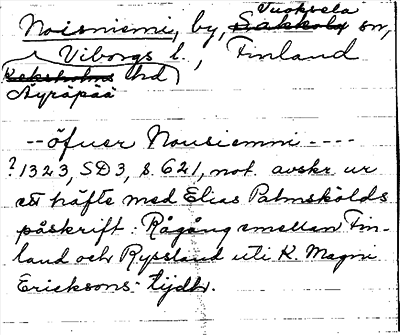 Vuoksela
Noisniemi, by, Sakkola sn,
Viborgs l., Finland
Keksholms hd
Äyräpää
-- öfuer Nousiemmi ----
? 1323, SD3, s. 621, not. avskr. ur
ett häfte med Elias Palmskölds
påskrift: Rågång emellan Fin-
land och Ryssland uti K. Magni
Ericksons tijdhr.